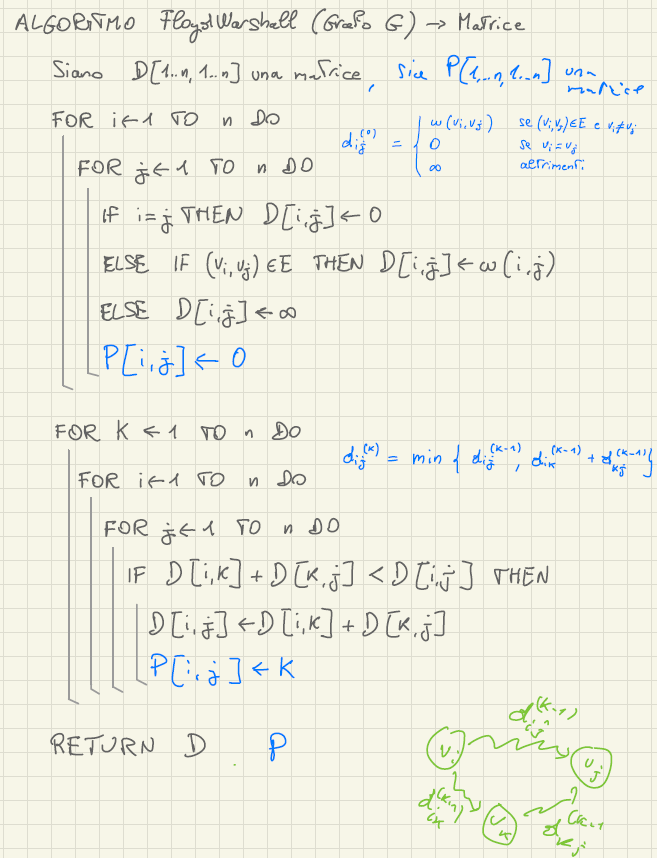 ALGORITMO FloydWarshall (Grafo G) → Matrice
Siano D[1..n, 1..n] una matrice, sia P[1,..n, 1..n] una
matrice
FOR i ← 1 TO n DO
d_ij^(0) = { ω(v_i, v_j) se (v_i, v_j) ∈ E e v_i ≠ v_j
0 se v_i = v_j
∞ altrimenti
FOR j ← 1 TO n DO
IF i = j THEN D[i, j] ← 0
ELSE IF (v_i, v_j) ∈ E THEN D[i, j] ← ω(i, j)
ELSE D[i, j] ← ∞
P[i, j] ← 0
FOR K ← 1 TO n DO
d_ij^(K) = min { d_ij^(K-1), d_iK^(K-1) + d_Kj^(K-1) }
FOR i ← 1 TO n DO
FOR j ← 1 TO n DO
IF D[i, K] + D[K, j] < D[i, j] THEN
D[i, j] ← D[i, K] + D[K, j]
P[i, j] ← K
RETURN D P
d_ij^(K-1)
v_i v_j
d_iK^(K-1) v_K d_Kj^(K-1